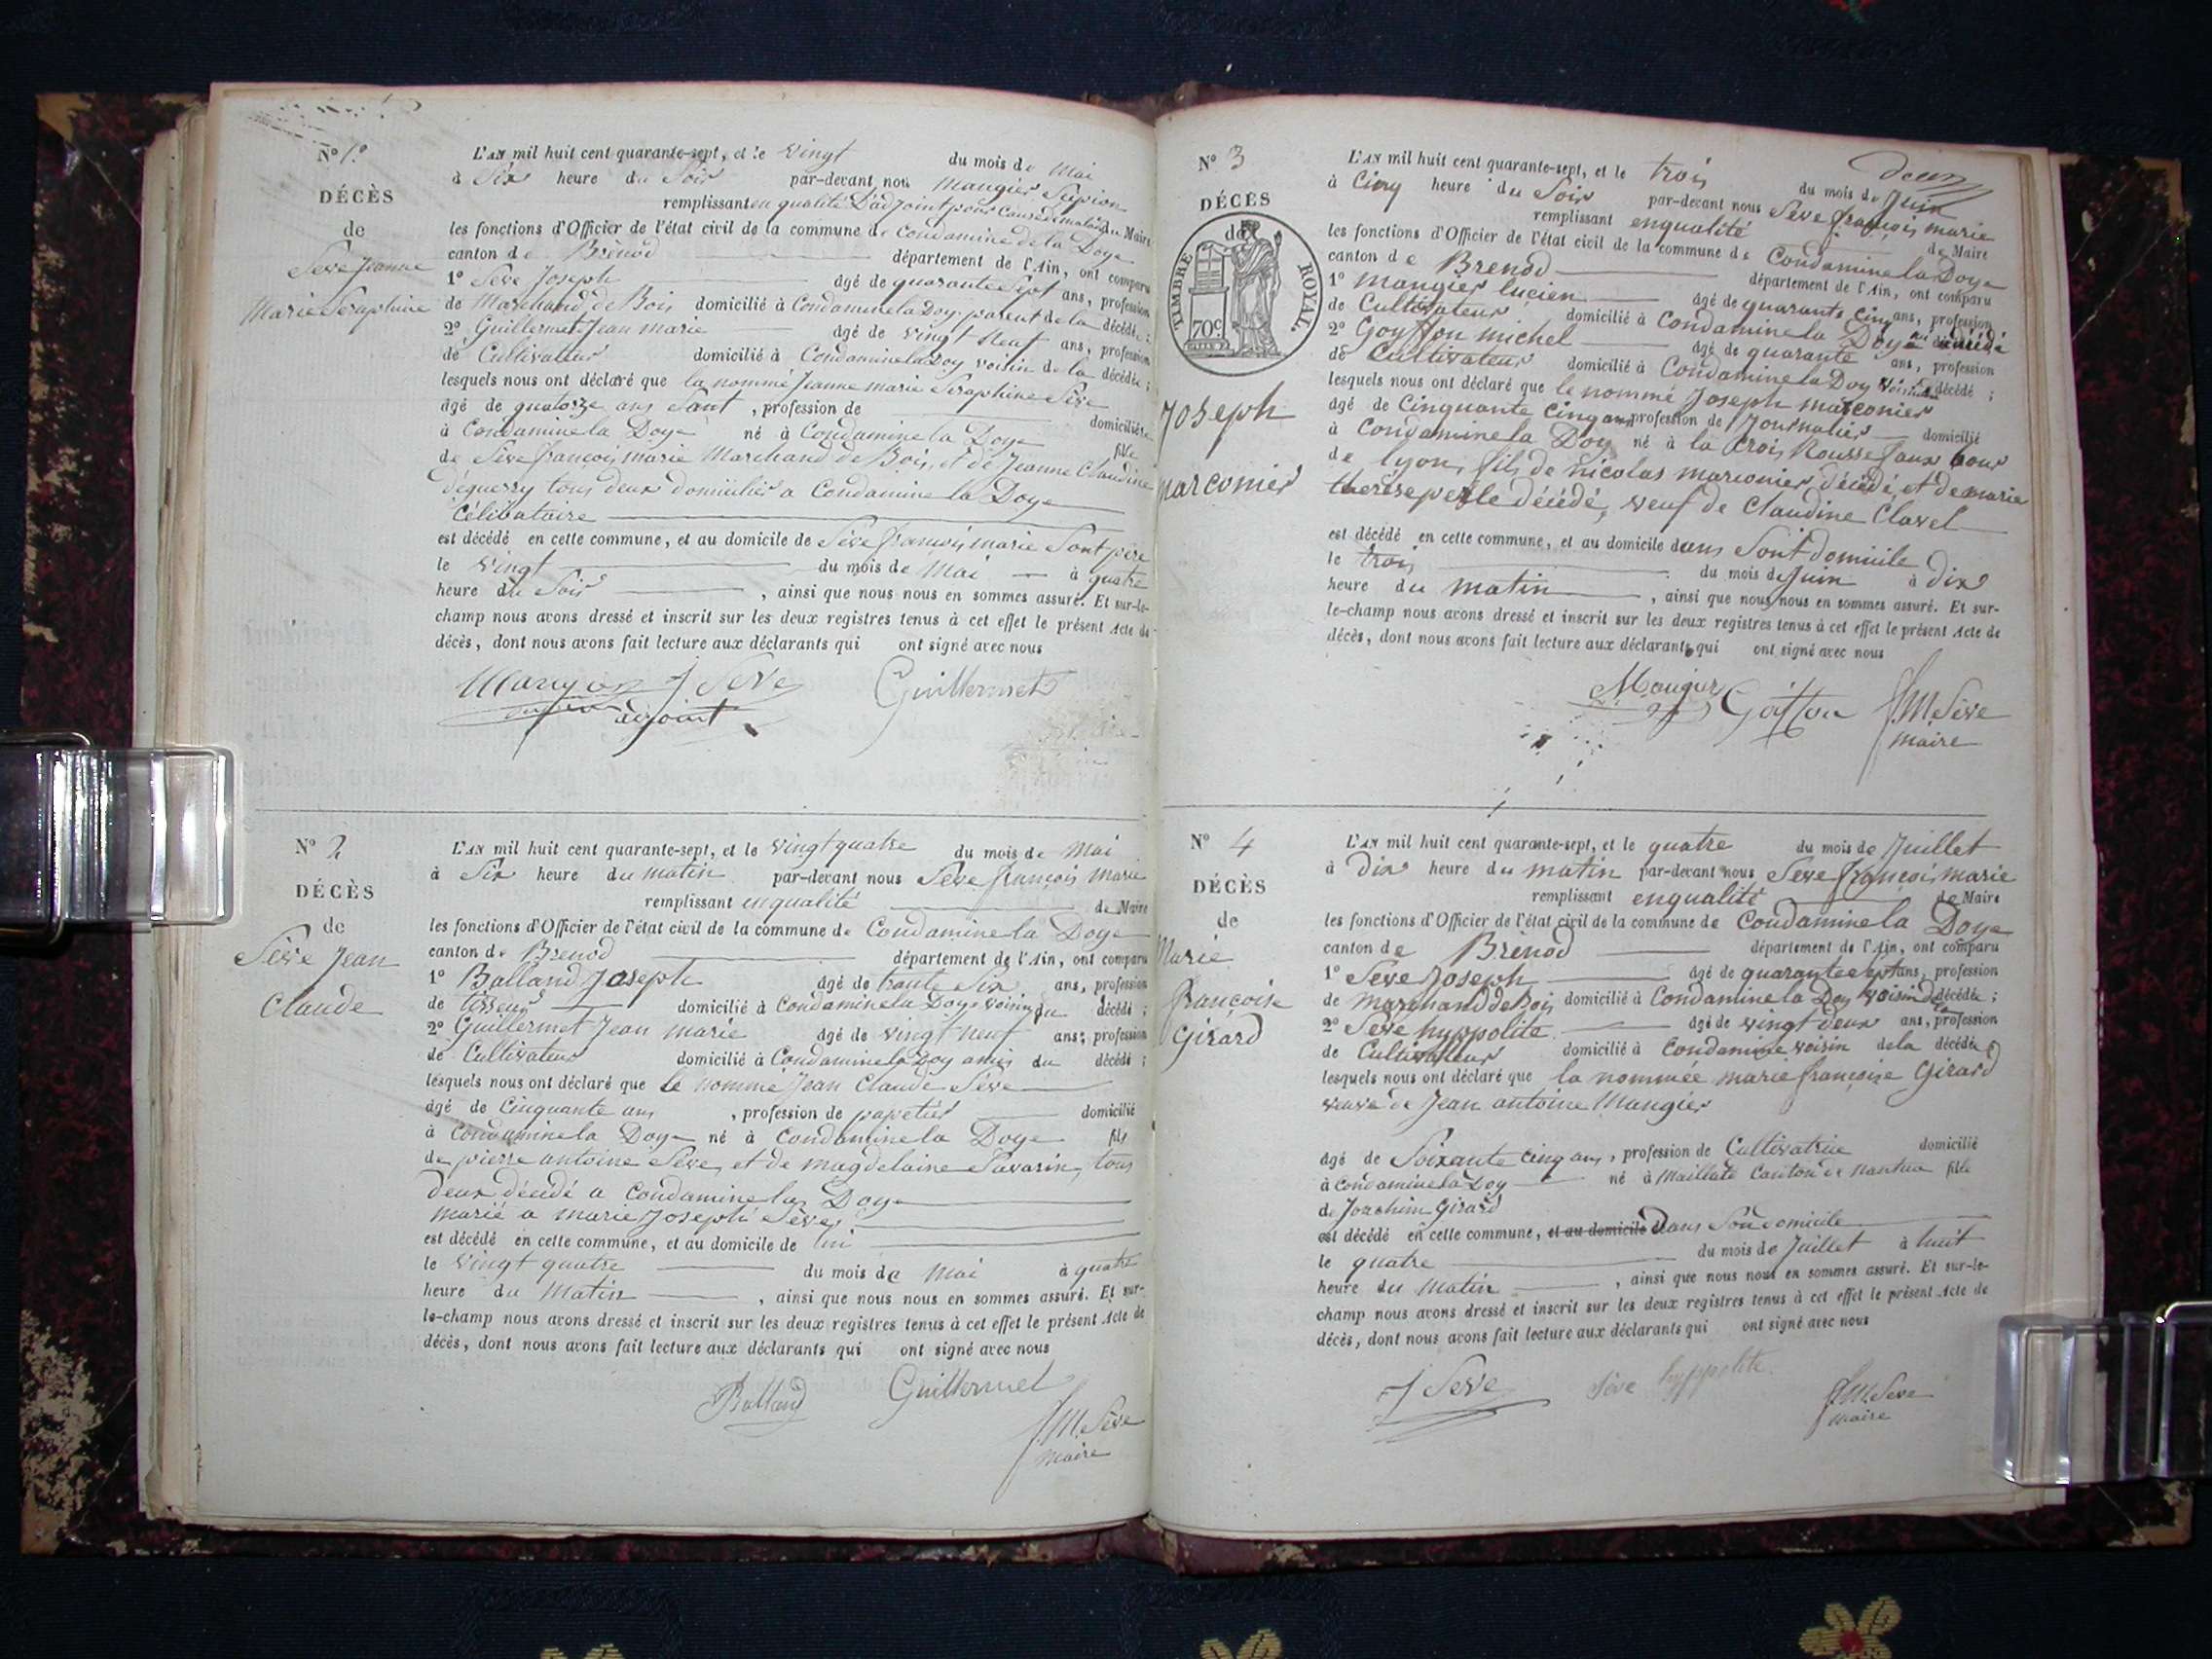 N° 1.°
DÉCÈS
de
Sève Jeanne
Marie Séraphine
L'AN mil huit cent quarante-sept, et le vingt du mois de Mai
à Six heure du Soir par-devant nous Maugier
remplissant en qualité D'adjoint pour Cause de maladie du Maire
les fonctions d'Officier de l'état civil de la commune de Condamine de la Doye
canton de Brénod département de l'Ain, ont comparu
1° Sève Joseph âgé de quarante Sept ans, profession
de Marchand de Bois domicilié à Condamine la Doy parent de la décédée ;
2° Guillermet Jean marie âgé de vingt Neuf ans, profession
de Cultivateur domicilié à Condamine la Doy voisin de la décédée ;
lesquels nous ont déclaré que la nommé Jeanne marie Séraphine Sève
âgé de quatorze ans Sant , profession de domiciliée
à Condamine la Doye né à Condamine la Doye fille
de Sève françois marie Marchand de Bois, et de Jeanne Claudine
déguerry tous deux domiciliés a Condamine la Doye
Célibataire
est décédé en cette commune, et au domicile de Sève françois marie Sont père
le vingt du mois de Mai à quatre
heure du Soir , ainsi que nous nous en sommes assuré. Et sur-le-
champ nous avons dressé et inscrit sur les deux registres tenus à cet effet le présent Acte de
décès, dont nous avons fait lecture aux déclarants qui ont signé avec nous
Maugier J Sève Guillermet
adjoint
N° 2
DÉCÈS
de
Sève Jean
Claude
L'AN mil huit cent quarante-sept, et le vingt quatre du mois de Mai
à Six heure du matin par-devant nous Sève françois marie
remplissant en qualité de Maire
les fonctions d'Officier de l'état civil de la commune de Condamine la Doye
canton de Brenod département de l'Ain, ont comparu
1° Balland Joseph âgé de trante Six ans, profession
de tisseur domicilié à Condamine la Doye voisin du décédé ;
2° Guillermet Jean marie âgé de vingt neuf ans, profession
de Cultivateur domicilié à Condamine la Doy amis du décédé ;
lesquels nous ont déclaré que le nomme Jean Claude Sève
âgé de Cinquante ans , profession de papetier domicilié
à Condamine la Doye né à Condamine la Doye fils
de pierre antoine Sève, et de magdelaine Savarin, tous
deux décédé a Condamine la Doye
marié a marie Josephe Sève,
est décédé en cette commune, et au domicile de lui
le vingt quatre du mois de Mai à quatre
heure du Matin , ainsi que nous nous en sommes assuré. Et sur-
le-champ nous avons dressé et inscrit sur les deux registres tenus à cet effet le présent Acte de
décès, dont nous avons fait lecture aux déclarants qui ont signé avec nous
Balland Guillermet
f.M. Sève
maire
N° 3
DÉCÈS
de
TIMBRE ROYAL.
70c
Joseph
marconier
deux
L'AN mil huit cent quarante-sept, et le trois du mois de Juin
à Cinq heure du Soir par-devant nous Sève françois marie
remplissant en qualité de Maire
les fonctions d'Officier de l'état civil de la commune de Condamine la Doye
canton de Brenod département de l'Ain, ont comparu
1° Maugier lucien âgé de quarante Cinq ans, profession
de Cultivateur domicilié à Condamine la Doye
2° Goyffon michel âgé de quarante ans, profession
de Cultivateur domicilié à Condamine la Doy voisin décédé ;
lesquels nous ont déclaré que le nommé Joseph marconier
âgé de Cinquante cinq ans profession de Journalier domicilié
à Condamine la Doy né à la Croix Rousse faux bour
de lyon, fils de nicolas marconier, décédé, et de marie
therèse perle décédé, veuf de Claudine Clavel
est décédé en cette commune, et au domicile dans Sont domicile
le trois du mois de Juin à dix
heure du matin , ainsi que nous nous en sommes assuré. Et sur-
le-champ nous avons dressé et inscrit sur les deux registres tenus à cet effet le présent Acte de
décès, dont nous avons fait lecture aux déclarants qui ont signé avec nous
Mougier Goiffon f.M. Sève
maire
N° 4
DÉCÈS
de
Marie
françoise
Girard
L'AN mil huit cent quarante-sept, et le quatre du mois de Juillet
à Dix heure du matin par-devant nous Sève françois marie
remplissant en qualité de Maire
les fonctions d'Officier de l'état civil de la commune de Condamine la Doye
canton de Brénod département de l'Ain, ont comparu
1° Sève Joseph âgé de quarante sept ans, profession
de marchand de Bois domicilié à Condamine la Doy voisin de la décédée ;
2° Sève hyppolite âgé de vingt deux ans, profession
de Cultivateur domicilié à Condamine voisin de la décédée ;
lesquels nous ont déclaré que la nommée marie françoise Girard
veuve de Jean antoine Maugier
âgé de Soixante cinq ans, profession de Cultivatrice domicilié
à Condamine la Doy né à Maillat Canton de Nantua fille
de Joachim Girard
est décédé en cette commune, et au domicile dans Son domicile
le quatre du mois de Juillet à huit
heure du Matin , ainsi que nous nous en sommes assuré. Et sur-le-
champ nous avons dressé et inscrit sur les deux registres tenus à cet effet le présent Acte de
décès, dont nous avons fait lecture aux déclarants qui ont signé avec nous
J Sève Sève hyppolite f.M. Sève
maire